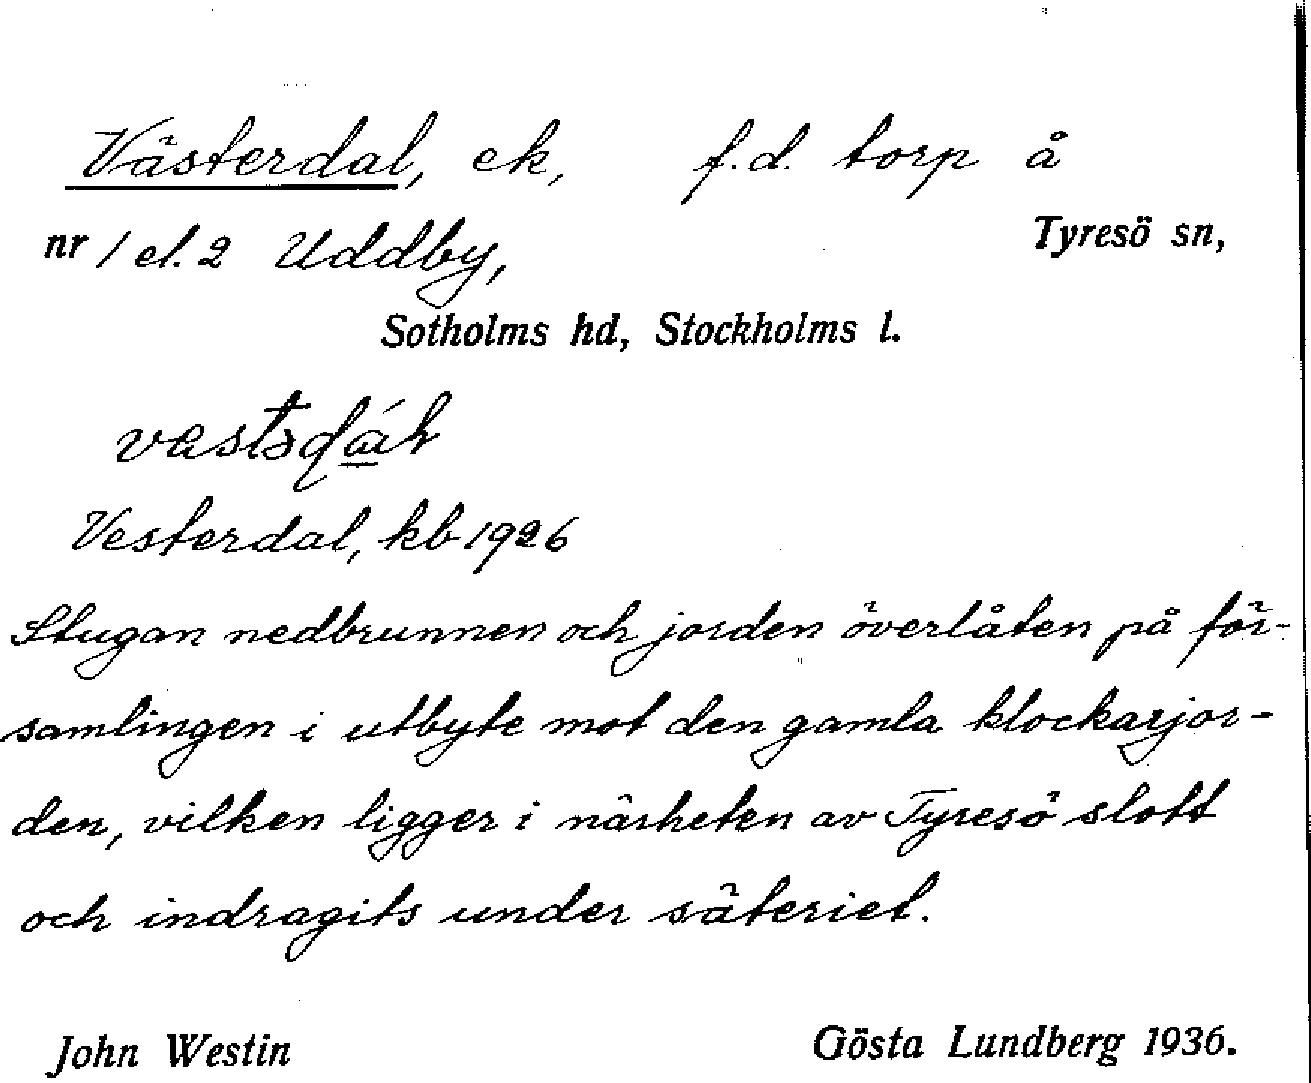 Västerdal, ek, f.d. torp å
nr 1 el. 2 Uddby, Tyresö sn,
Sotholms hd, Stockholms l.
Vesterdal, kb 1926
Stugan nedbrunnen och jorden överlåten på för-
samlingen i utbyte mot den gamla klockarjor-
den, vilken ligger i närheten av Tyresö slott
och indragits under säteriet.
John Westin Gösta Lundberg 1936.